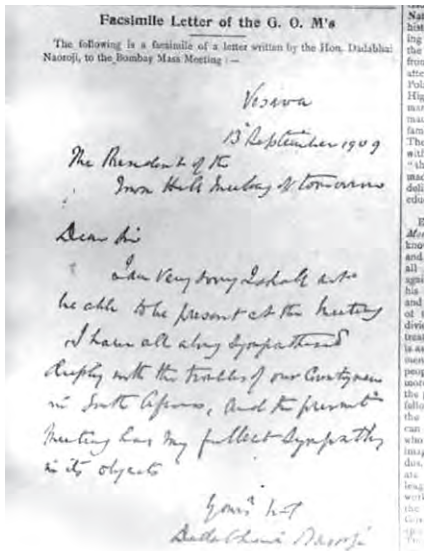 Facsimile Letter of the G. O. M's
The following is a facsimile of a letter written by the Hon. Dadabhai
Naoroji, to the Bombay Mass Meeting :—
Vesava
13 September 1909
The President of the
Town Hall Meeting of tomorrow
Dear Sir
I am very sorry I shall not
be able to be present at the meeting
I have all along sympathised
deeply with the troubles of our Countrymen
in South Africa, and the present
meeting has my fullest sympathy
in its objects
Yours
Dadabhai Naoroji